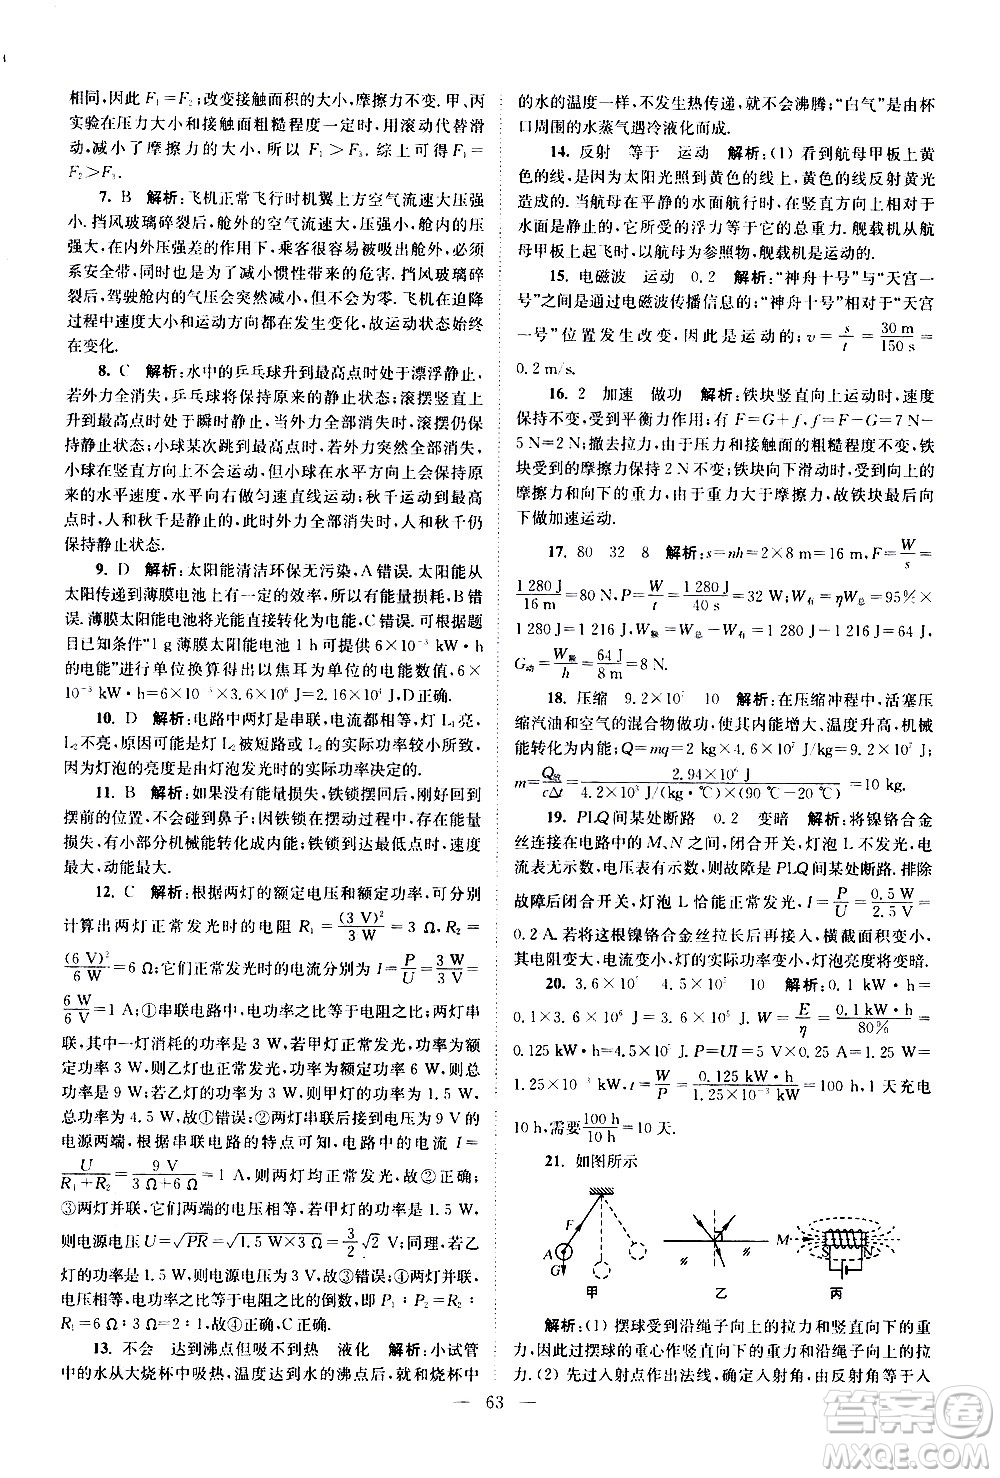 相同,因此 F₁=F₂;改变接触面积的大小,摩擦力不变.甲、丙
实验在压力大小和接触面粗糙程度一定时,用滚动代替滑
动,减小了摩擦力的大小,所以 F₁>F₃.综上所述:F₁=
F₂>F₃.
7. B 解析:飞机正常飞行时机翼上方空气流速大压强
小.挡风玻璃碎裂后,舱外的空气流速大压强小,舱内的压
强大,在内外压强差的作用下,乘客很容易被吸出舱外,必须
系安全带,同时也可以减小惯性带来的危害.挡风玻璃碎
裂后,驾驶舱内的气压会突然减小,但不为零.飞机在迫降
过程中速度大小和运动方向都在发生变化,故运动状态始终
在变化.
8. C 解析:水中的乒乓球升到最高点时处于漂浮静止,
若外力全部消失,乒乓球将保持原来的静止状态;滚摆竖直上
升到最高点时处于瞬时静止,当外力全部消失时,滚摆仍然
保持静止状态;小球某次跳到最高点时外力突然全部消失,
小球在竖直方向上不会运动,但小球在水平方向保持原来
的水平速度,水平方向做匀速直线运动;秋千运动到最高点
时,人和秋千是静止的,此时外力全部消失时,人和秋千仍
保持静止状态.
9. D 解析:太阳能清洁环保无污染,A错误.太阳能从
太阳传递到薄膜电池上有一定的效率,所以有能量消耗,B错
误.薄膜太阳能电池将光能直接转化为电能,C错误.可根据
题目已知条件“1 g薄膜太阳能电池 1 h 可供 6×10⁻³ kW·h
的电能”进行单位换算得出以焦耳为单位的电能数值,6×
10⁻³ kW·h=6×10⁻³×3.6×10⁶ J=21 600 J,D正确.
10. D 解析:电路中两灯是串联,电流相等,灯 L₁亮,
L₂不亮,原因可能是灯 L₂被短路或是实际功率较小所致,
因为灯泡的亮度是由灯泡发光时的实际功率决定的.
11. B 解析:如果没有能量损失,铁锁摆回时,会到原来
摆前的位置,不会碰到鼻子;因铁锁在摆动过程中,存在摩
擦,有部分机械能转化成内能;铁锁到最低点时,速度最大,
动能最大.
12. C 解析:根据两灯的额定电压和额定功率,可分别
计算出两灯正常发光时的电阻 R₁=(3 V)²/3 W=3 Ω,R₂=
(6 V)²/6 W=6 Ω;它们正常发光时的电流分别为 I=P/U=3 W/3 V、
6 W/6 V=1 A;①串联电路中,电功率之比等于电阻之比;两灯串
联,其中一灯消耗的功率是 3 W,若甲灯正常发光,功率为额
定功率,则乙灯的功率大于其额定功率,不符合实际情况,且
总功率大于 6 W;若乙灯正常发光,则甲灯的功率为 1.5 W,
总功率为 4.5 W,故①错误;②两灯串联后接到电压为 9 V 的
电源两端,根据串联电路的特点可知,电路中的电流 I=
U/(R₁+R₂)=9 V/(3 Ω+6 Ω)=1 A,则两灯均正常发光,故②正确;
③两灯并联,它们两端的电压相等,若甲灯的功率是 1.5 W,
则电源电压 U=√PR=√1.5 W×3 Ω=3/2 √2 V;同理,若乙
灯的功率是 1.5 W,则电源电压为 3 V,故③错误;④两灯并
联,电功率之比等于电阻之比的倒数,即 P₁∶P₂=R₂∶
R₁=6 Ω∶3 Ω=2∶1,故④正确,C正确.
13. 不会 达到沸点但吸不到热 液化 解析:小试管
中的水从大烧杯中吸热,温度达到水的沸点,但和大烧杯中
的水的温度一样,不发生热传递,故不会沸腾;“白气”是由杯
口周围的水蒸气遇冷液化而成.
14. 反射 等于 运动 解析:(1) 看到航母甲板上黄
色的线,是因为太阳光照到黄色的线上,黄色的线反射黄光
造成的.当航母在平静的水面上航行时,在竖直方向受到
水面静止,所以航母受的浮力与重力大小相等.舰载机从航
母甲板上起飞时,以航母为参照物,舰载机是运动的.
15. 电磁波 运动 0.2 解析:“神舟十号”与“天宫一
号”之间是通过电磁波传播信息的;“神舟十号”相对“天宫
一号”位置发生改变,因此是运动的;v=s/t=30 m/150 s=
0.2 m/s.
16. 2 加速 做功 解析:铁块竖直向上运动时,速度
保持不变,受到平衡力作用:有 F=G+f,f=F-G=7 N-
5 N=2 N;撤去拉力,由于压力和接触面的粗糙程度不变,铁
块受到的摩擦力保持 2 N不变;铁块向下滑动时,受到向上的
摩擦力和向下的重力,由于重力大于摩擦力,故铁块最后向
下做加速运动.
17. 80 32 8 解析:s=nh=2×8 m=16 m,F=W/s=
1 280 J/16 m=80 N,P=W/t=1 280 J/40 s=32 W;W有=ηW总=95%×
1 280 J=1 216 J,W额=W总-W有=1 280 J-1 216 J=64 J,
G动=W额/h=64 J/8 m=8 N.
18. 压缩 9.2×10⁷ 10 解析:在压缩冲程中,活塞压
缩汽油和空气的混合物做功,使其内能增大、温度升高,机械
能转化为内能;Q=mq=2 kg×4.6×10⁷ J/kg=9.2×10⁷ J;
m=Q吸/cΔt=2.94×10⁶ J/4.2×10³ J/(kg·℃)×(90 ℃-20 ℃)=10 kg.
19. PLQ间某处断路 0.2 变暗 解析:将镍铬合金
丝连接在电路中的 M、N 之间,闭合开关,灯泡 L 不发光,电
流表无示数,电压表有示数,则故障是 PLQ间某处断路.排除
故障后闭合开关,灯泡 L 恰能正常发光,I=P/U=0.5 W/2.5 V=
0.2 A.若将这根镍铬合金丝拉长后再接入,横截面积变小,
电阻变大,电流变小,灯的实际功率变小,灯泡亮度将变暗.
20. 3.6×10⁵ 4.5×10⁵ 10 解析:0.1 kW·h=
0.1×3.6×10⁶ J=3.6×10⁵ J. W=E/η=0.1 kW·h/80%=
0.125 kW·h=4.5×10⁵ J. P=UI=5 V×0.25 A=
1.25 W=1.25×10⁻³ kW,t=W/P=0.125 kW·h/1.25×10⁻³ kW=100 h,1 天充电
10 h,需要100 h/10 h=10 天.
21. 如图所示
F
A
G
甲
乙
M
丙
解析:(1) 摆球受到沿绳子向上的拉力和竖直向下的重
力,过摆球的重心作竖直向下的重力和沿绳子向上的拉
力.(2) 先过入射点作出法线,再根据入射角、反射角等于入
63
答案圈
MXQE.COM